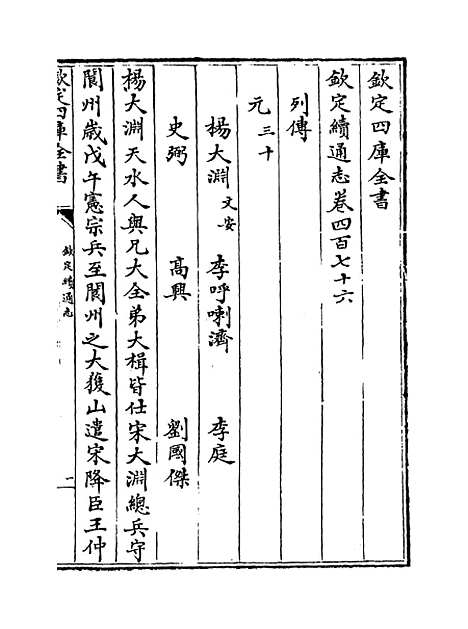 欽定四庫全書
欽定續通志卷四百七十六
列傳
元三十
楊大淵文安　李呼喇濟　李庭
史弼　高興　劉國傑
楊大淵天水人與兄大全弟大楫皆仕宋大淵總兵守
閬州歲戊午憲宗兵至閬州之大獲山遣宋降臣王仲
欽定四庫全書
欽定續通志
一